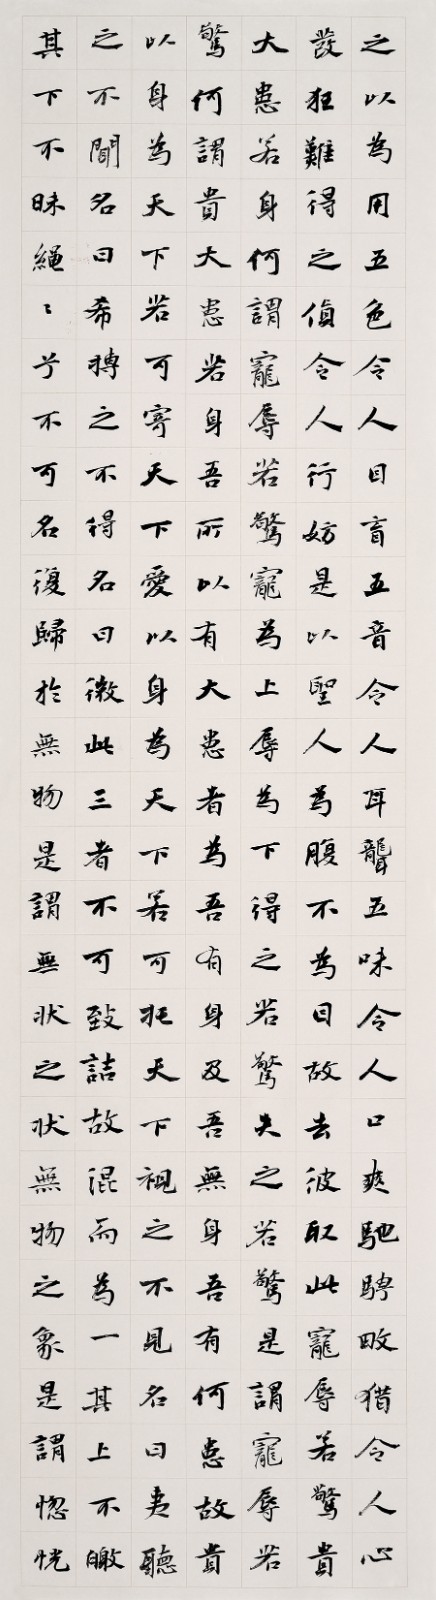 之以為用五色令人目盲五音令人耳聾五味令人口爽馳騁畋猎令人心
發狂難得之貨令人行妨是以聖人為腹不為目故去彼取此寵辱若驚貴
大患若身何謂寵辱若驚寵為上辱為下得之若驚失之若驚是謂寵辱若
驚何謂貴大患若身吾所以有大患者為吾有身及吾無身吾有何患故貴
以身為天下若可寄天下愛以身為天下若可托天下視之不見名曰夷聽
之不聞名曰希搏之不得名曰微此三者不可致詰故混而為一其上不皦
其下不昧繩〻兮不可名復歸於無物是謂無状之状無物之象是謂惚恍